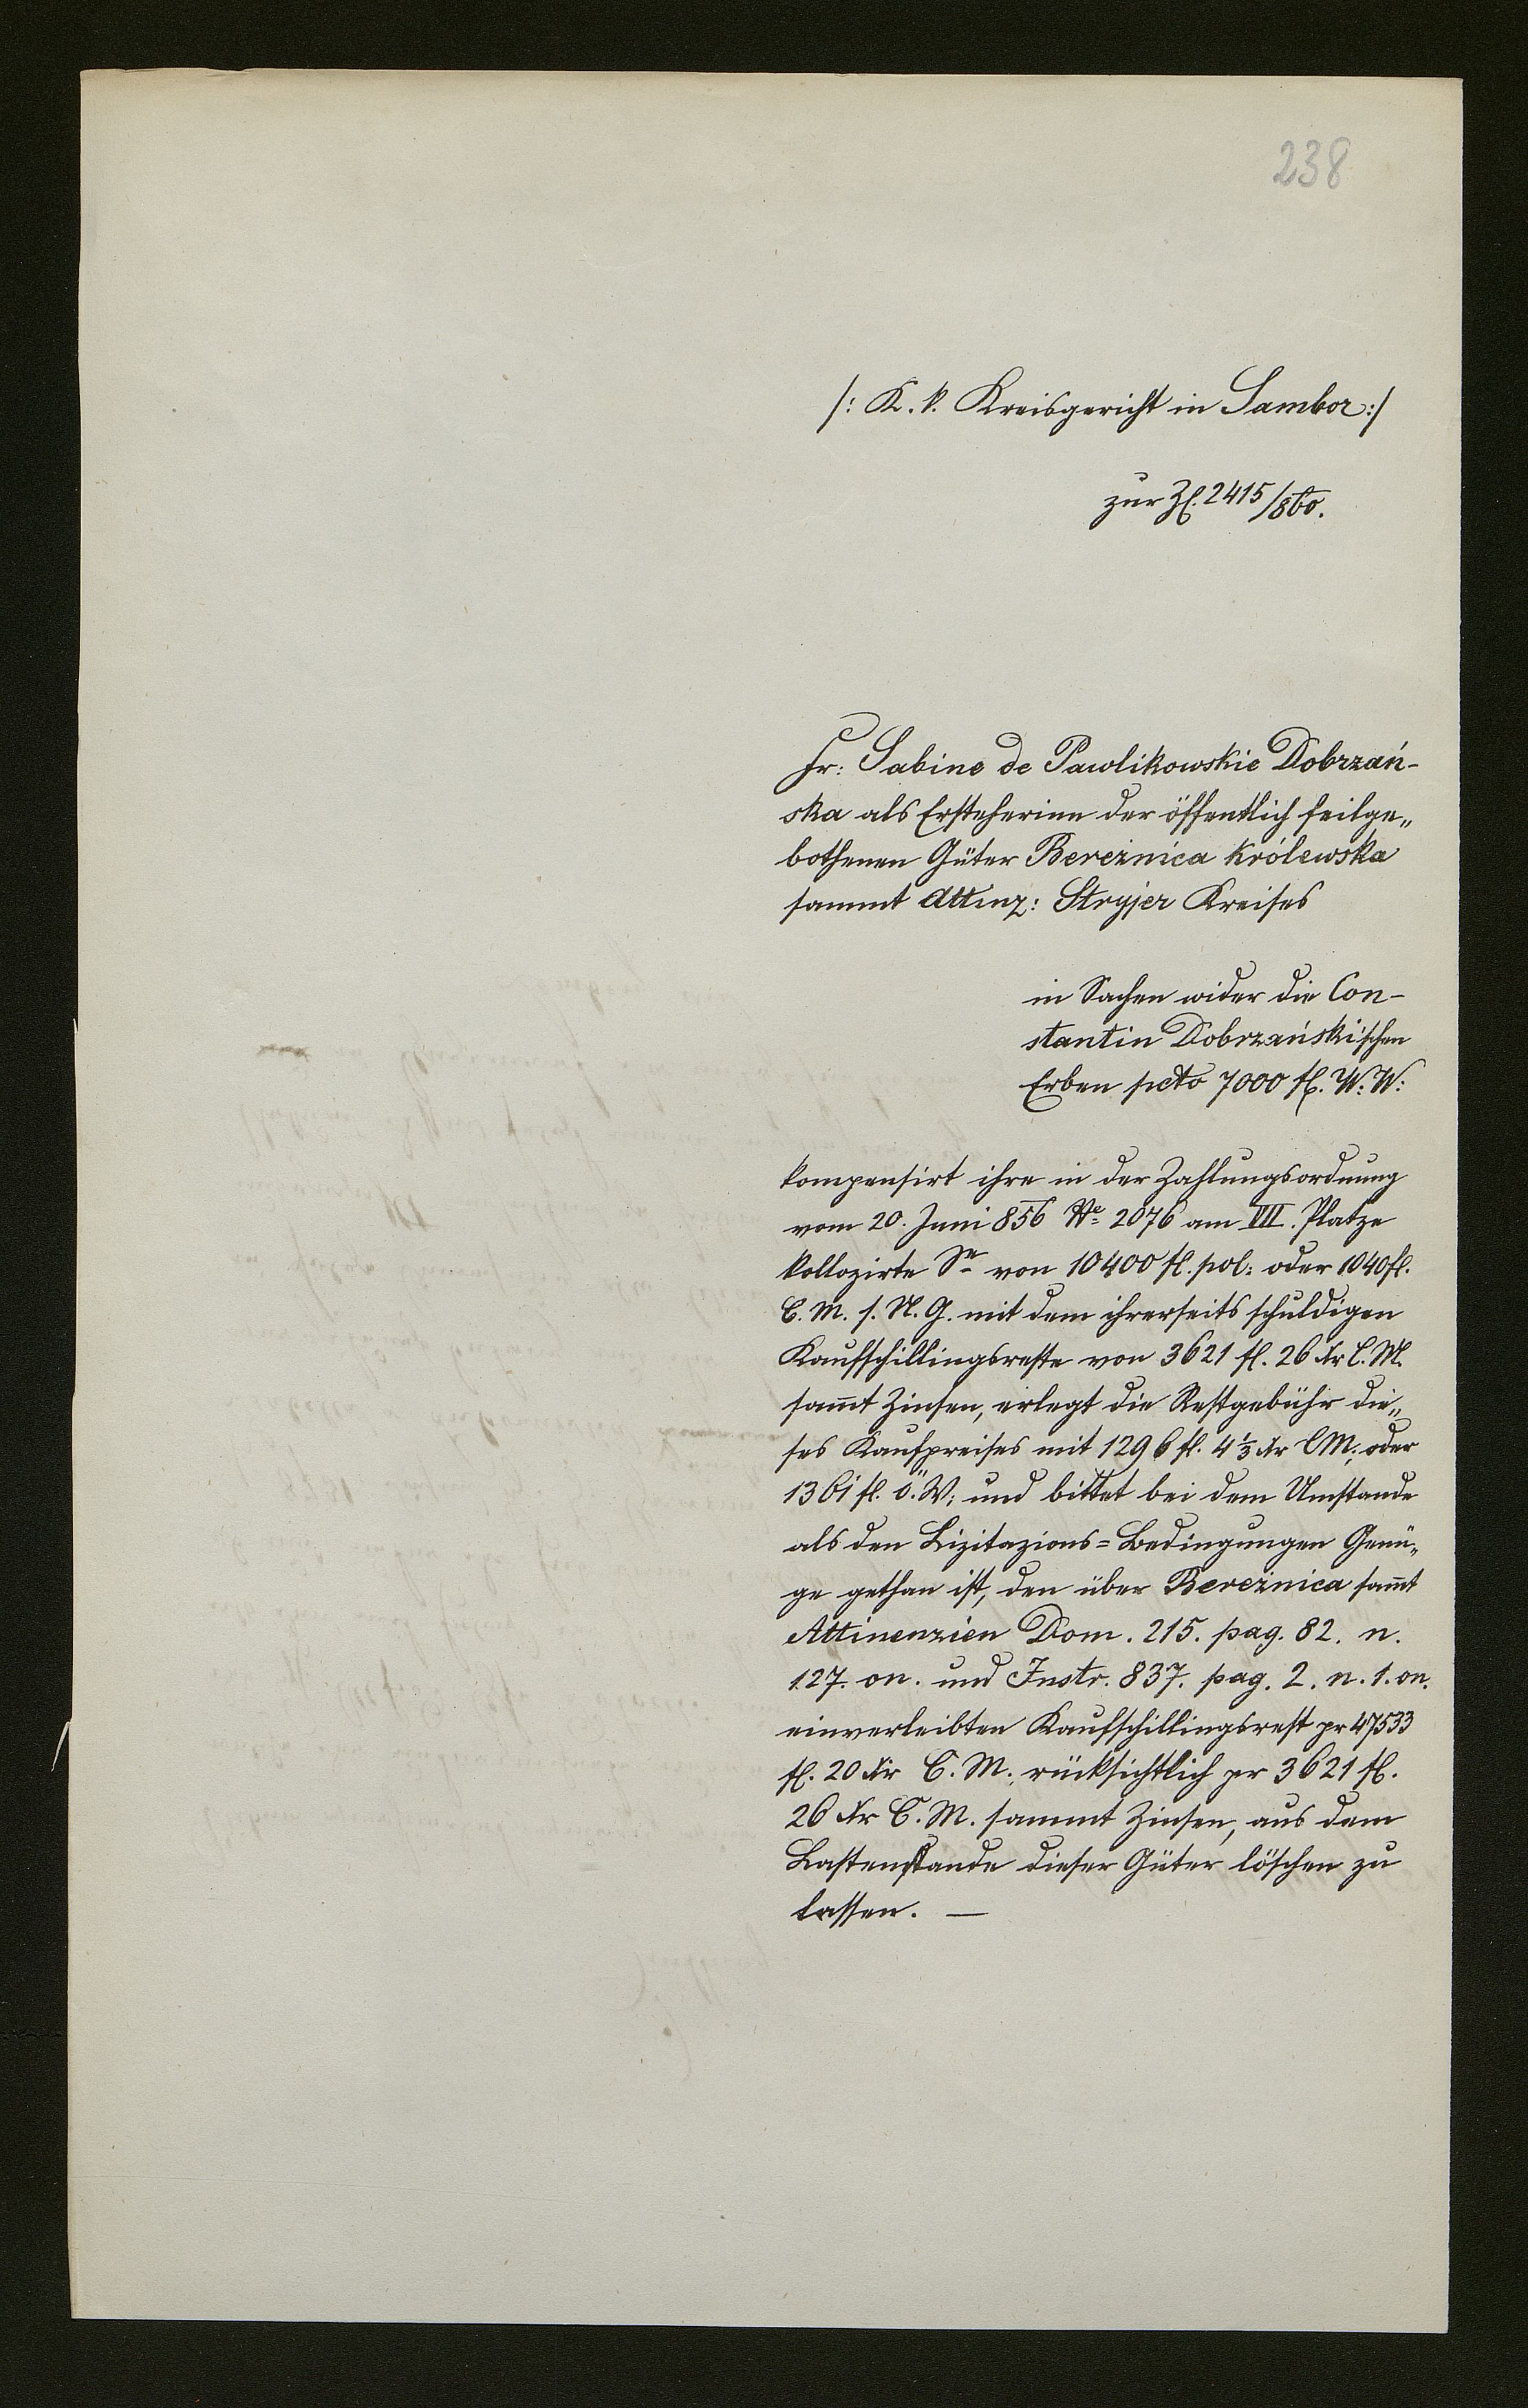 238
/: K. k. Kreisgericht in Sambor :/
zur Zl. 2415/860.
Fr: Sabine de Pawlikowskie Dobrzań-
ska als Ersteherinn der öffentlich feilge„
bothenen Güter Bereżnica królewska
sammt Attinz: Stryjer Kreises
in Sachen wider die Con-
stantin Dobrzański'schen
Erben pcto 7000 fl. W: W:
kompensirt ihre in der Zahlungsordnung
vom 20. Juni 856 2076 am VII. Platze
kollozirte Se von 10400 fl. pol: oder 1040 fl.
C. M. s. N. G. mit dem ihrerseits schuldigen
Kaufschillingsreste von 3621 fl. 26 Xr C. M.
sam̄t Zinsen, erlegt die Restgebühr die„
ses Kaufpreises mit 1296 fl. 4⅓ Xr CM; oder
1361 fl. ö. W; und bittet bei dem Umstande
als den Lizitazions=Bedingungen Genü„
ge gethan ist, den über Bereżnica sam̄t
Attinenzien Dom. 215. pag. 82. n.
127. on. und Instr. 837. pag. 2. n. 1. on.
einverleibten Kaufschillingsrest pr 47533
fl. 20 Xr C. M.; rücksichtlich pr 3621 fl.
26 Xr C. M. sammt Zinsen, aus dem
Lastenstande dieser Güter löschen zu
lassen. —